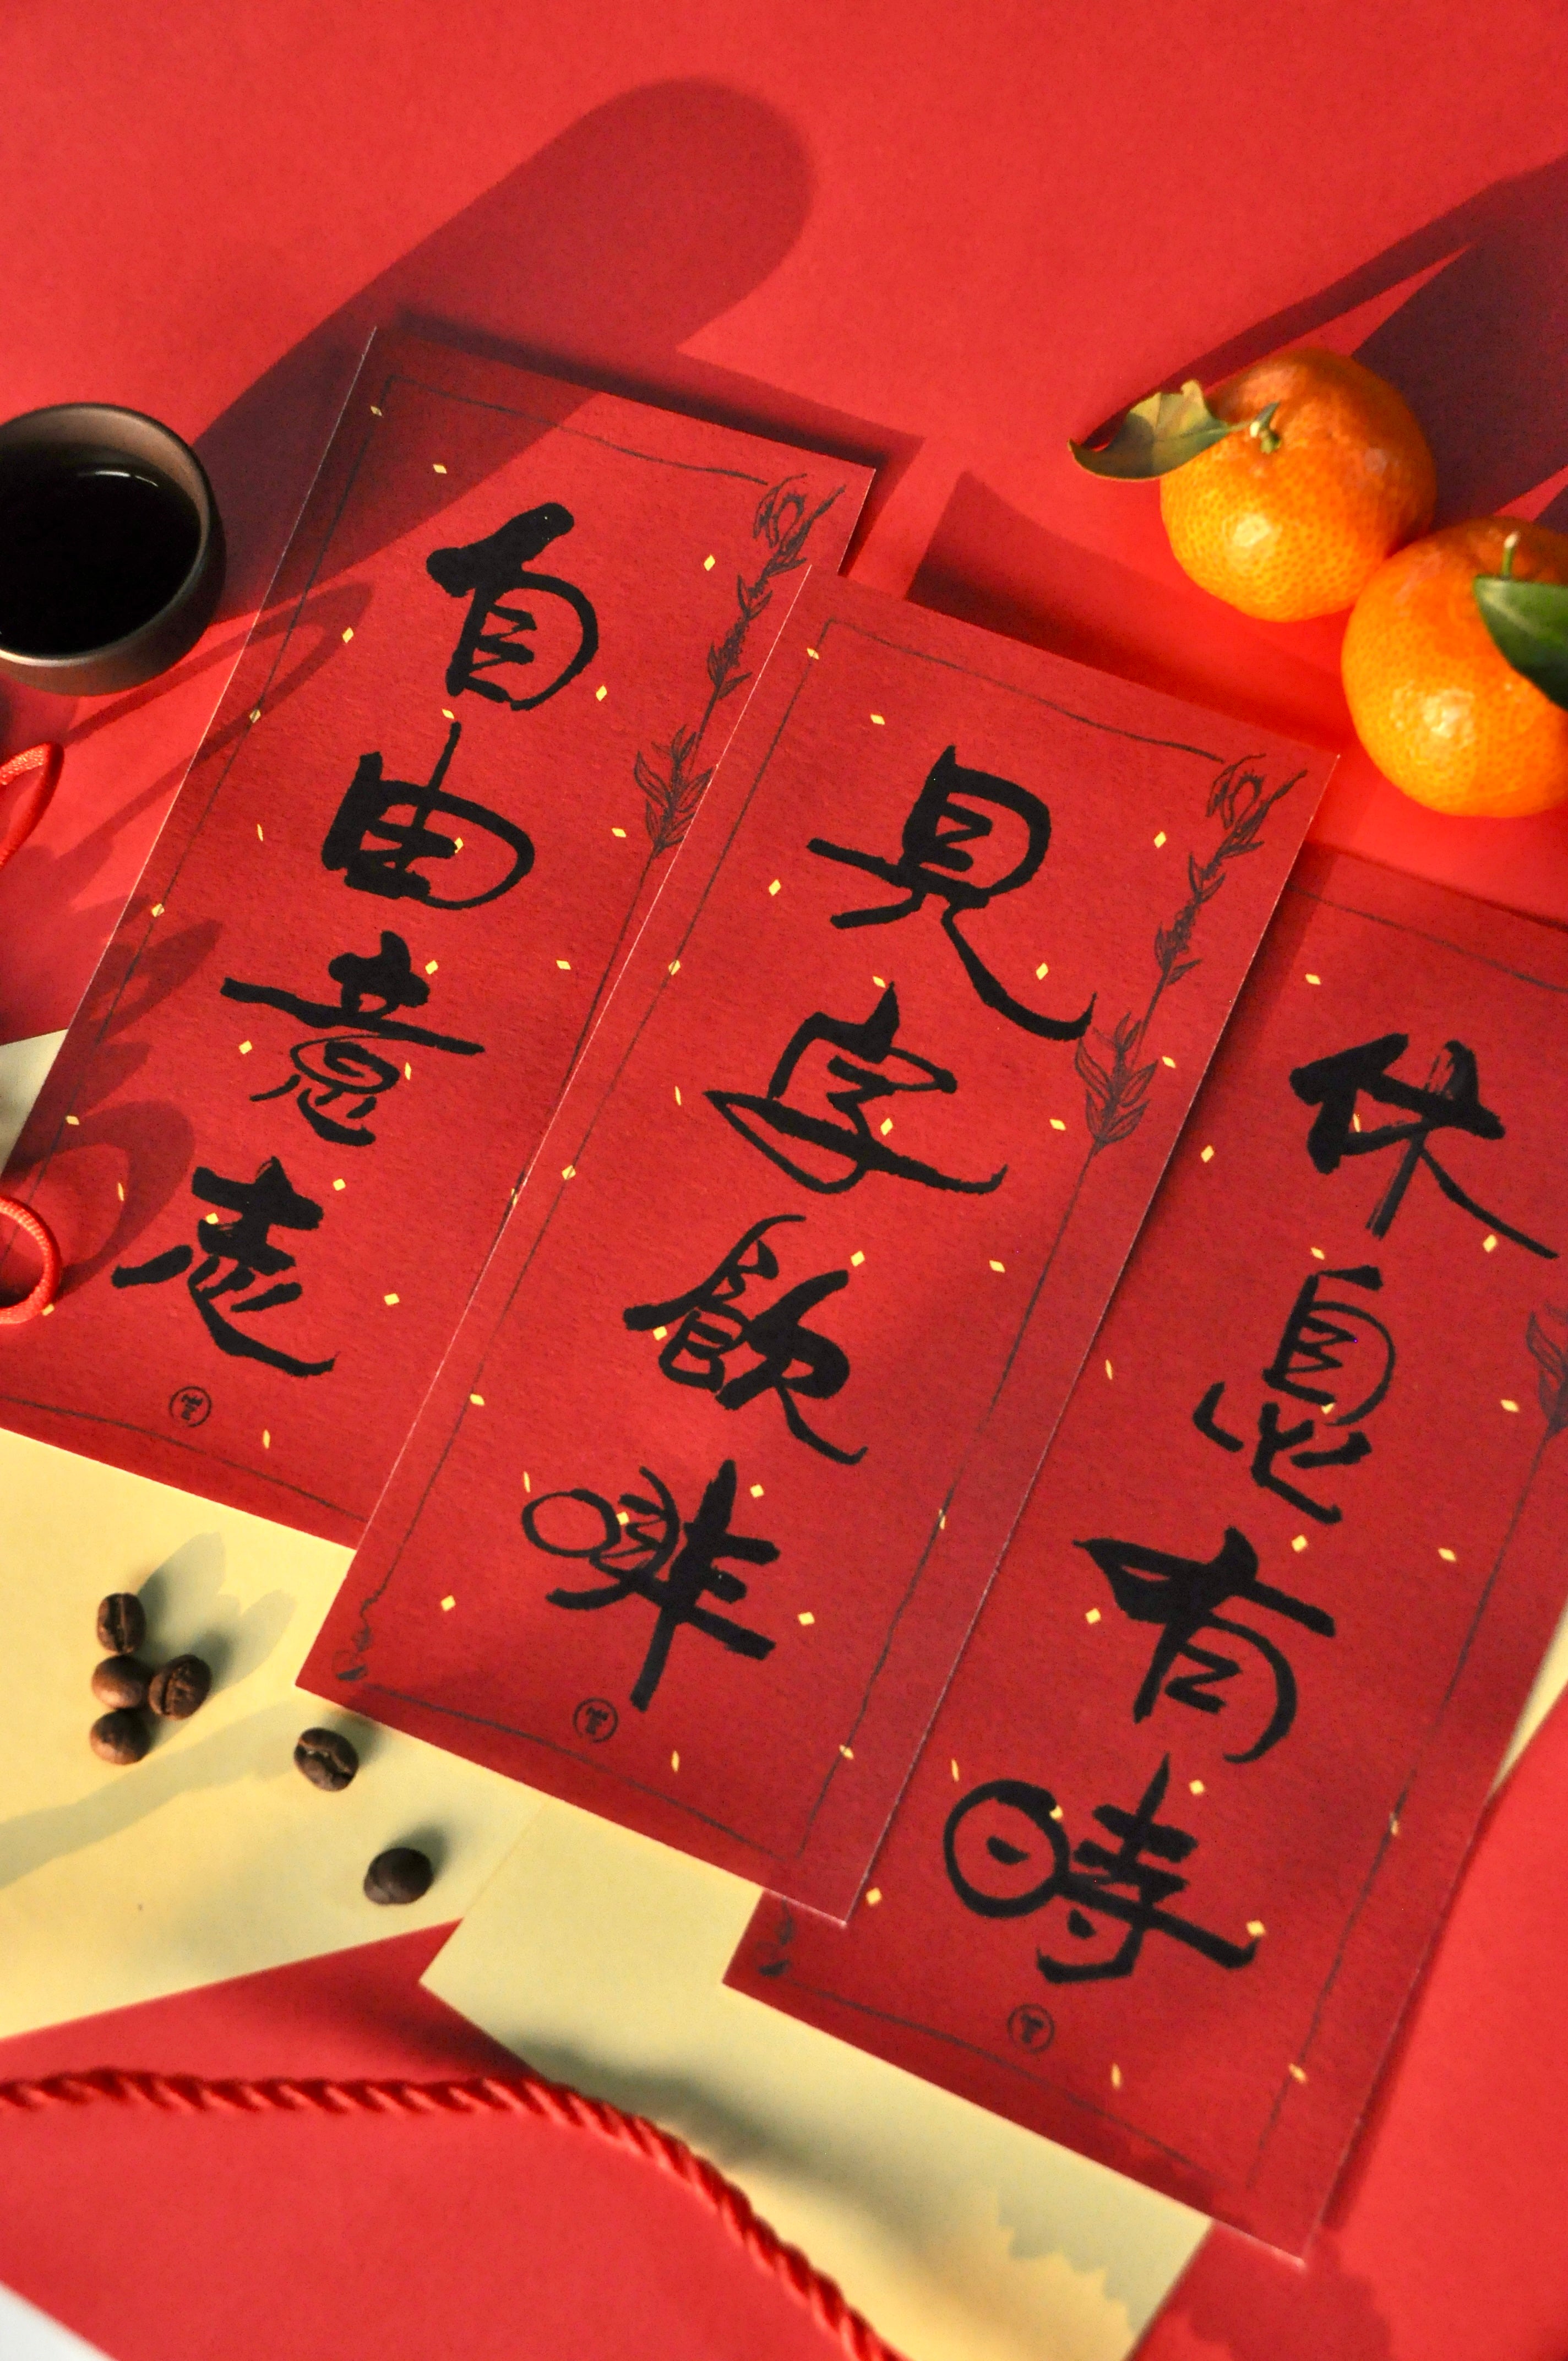 自由意志
見字飲啡
休息有時